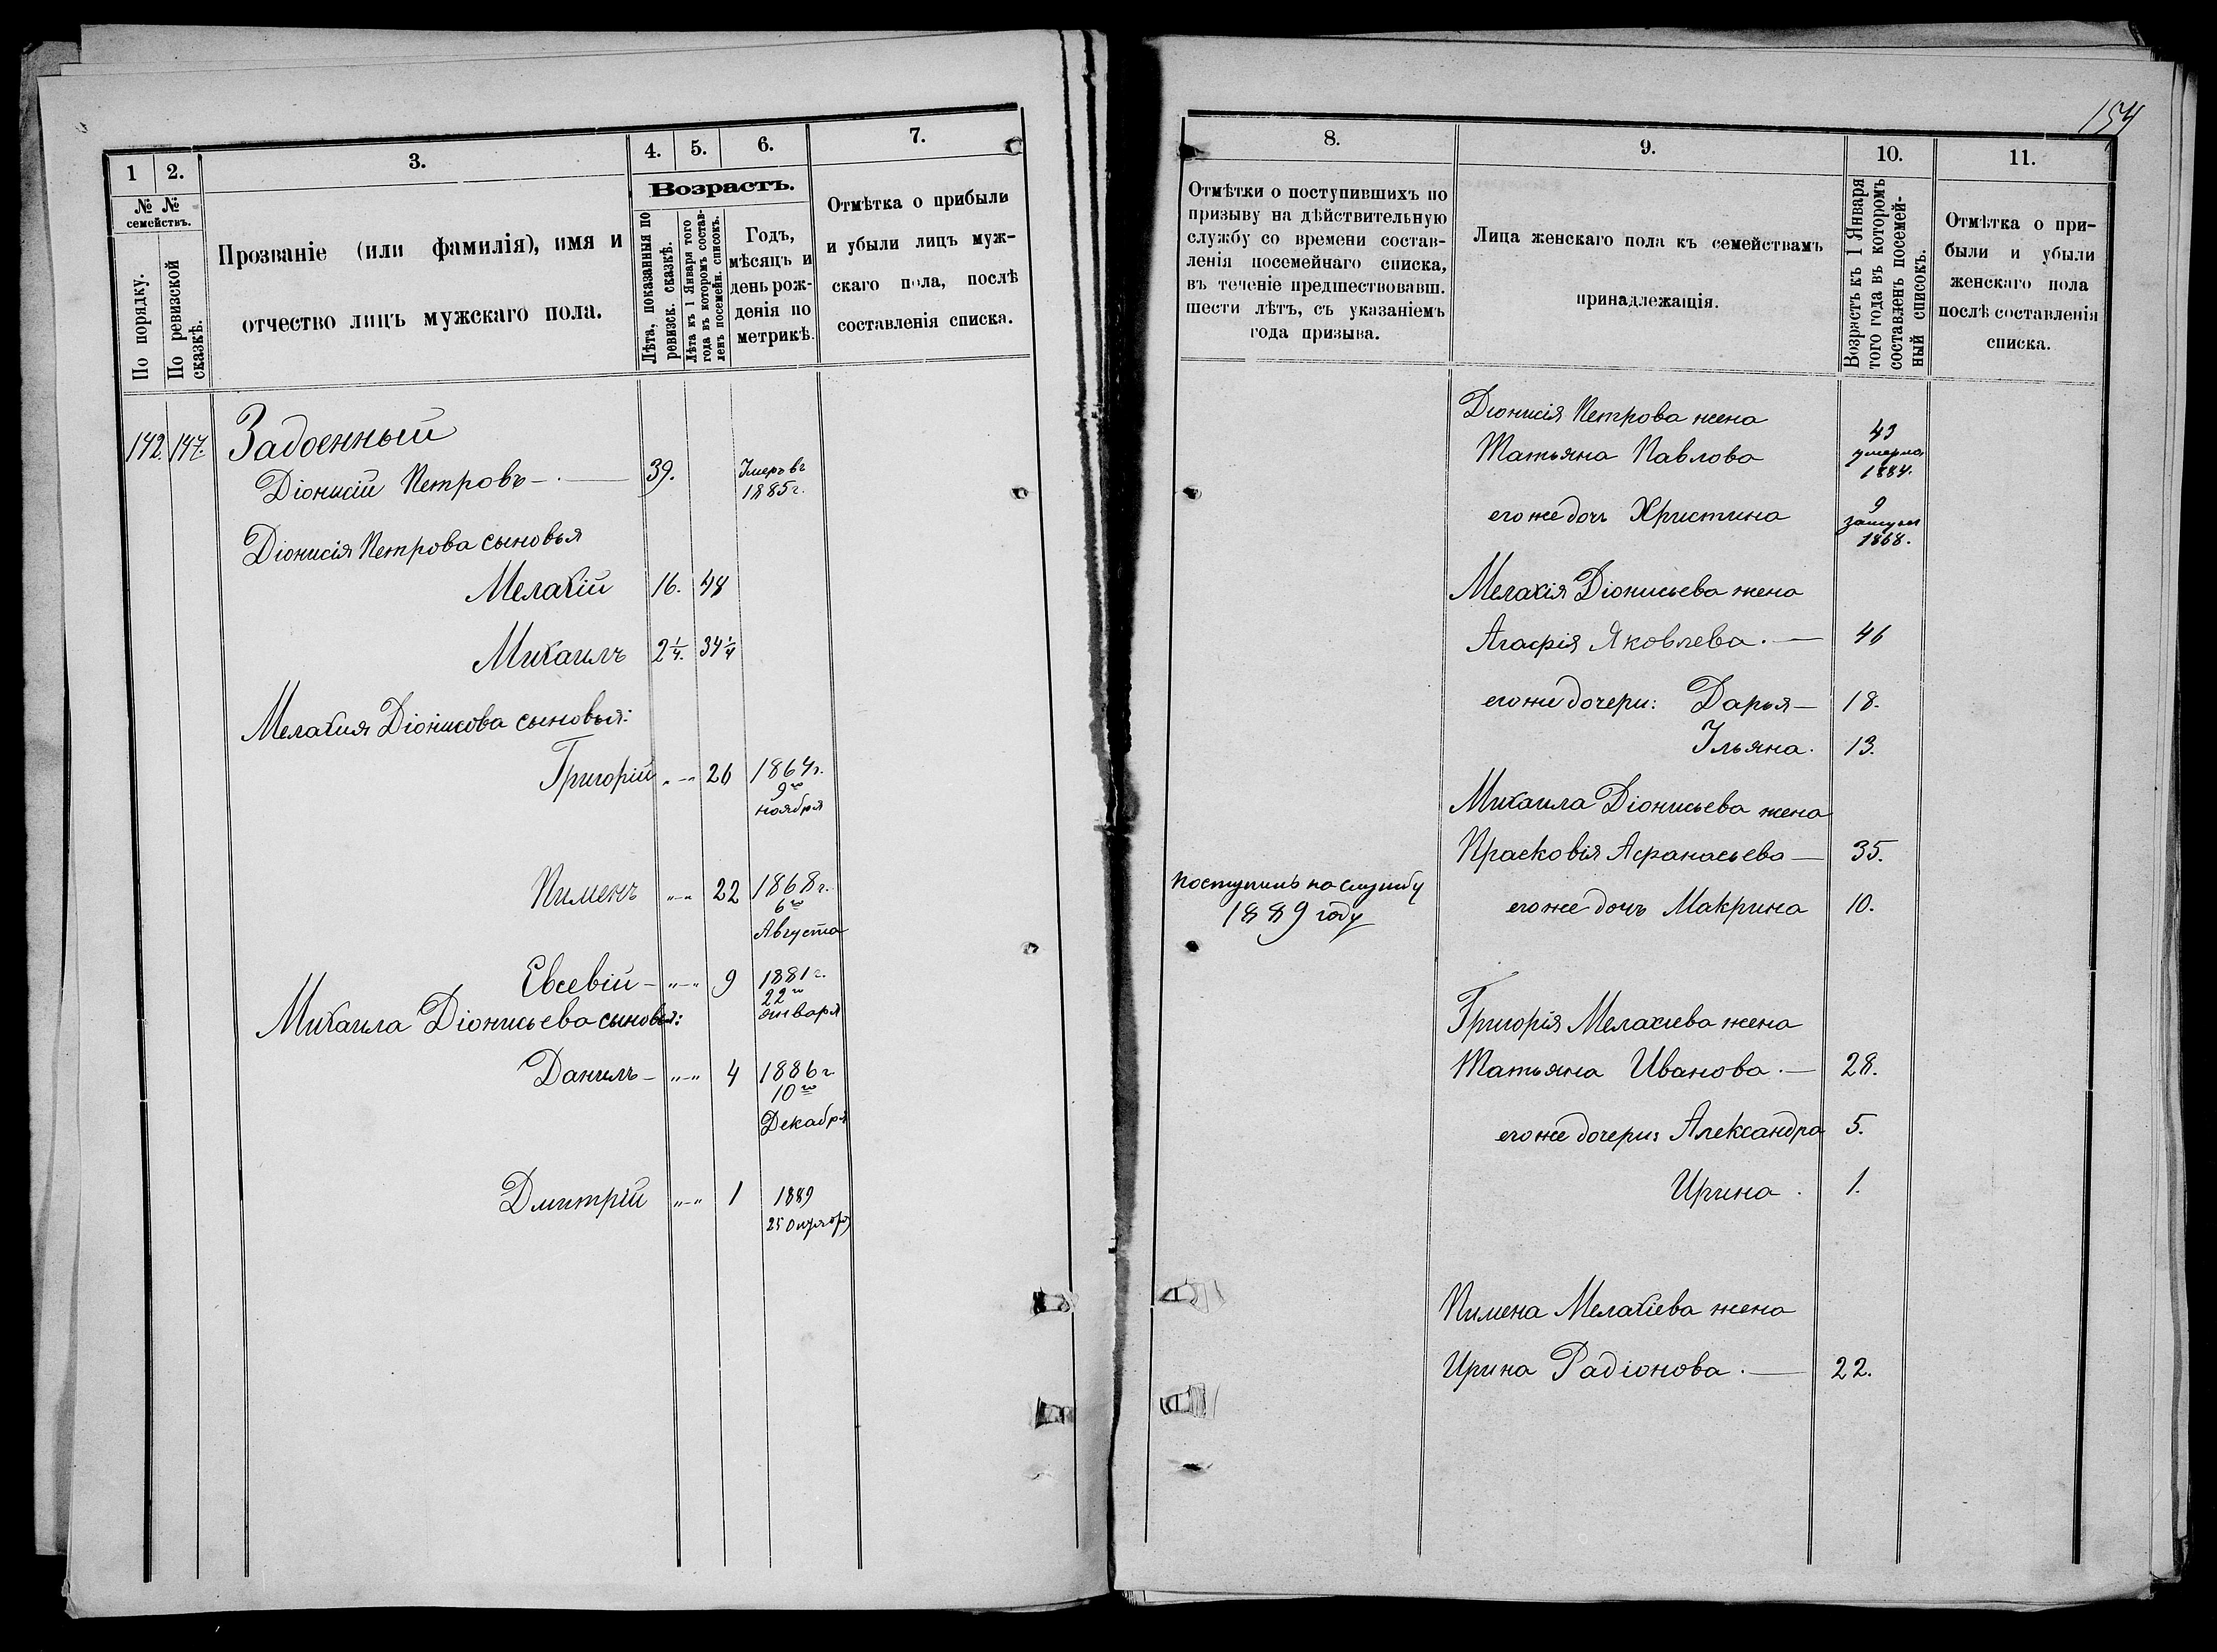 1 2. 3. 4. 5. 6. 7.
№ №
семействъ.
По порядку.
По ревизской
сказкѣ.
Прозваніе (или фамилія), имя и
отчество лицъ мужскаго пола.
Возрастъ.
Лѣта, показанныя по
ревизск. сказкѣ.
Лѣта къ 1 Января того
года въ которомъ состав-
ленъ посемейн. списокъ.
Годъ,
мѣсяцъ и
день рож-
денія по
метрикѣ.
Отмѣтка о прибыли
и убыли лицъ муж-
скаго пола, послѣ
составленія списка.
142. 147. Задоенный
Діонисій Петровъ — 39. Умеръ въ
1885 г.
Діонисія Петрова сыновья
Мелахій 16. 48
Михаилъ 2 1/4. 34 1/4
Мелахия Діонисова сыновья:
Григорій „—„ 26 1864 г.
9го
ноября
Пименъ „—„ 22 1868 г.
6го
Августа
Евсевій — „—„ 9 1881 г.
22го
января
Михаила Діонисьева сыновья:
Данилъ — „—„ 4 1886 г.
10го
Декабря
Дмитрій „—„ 1 1889
25 Октября
154
8. 9. 10. 11.
Отмѣтки о поступившихъ по
призыву на дѣйствительную
службу со времени состав-
ленія посемейнаго списка,
въ теченіе предшествовавш.
шести лѣтъ, съ указаніемъ
года призыва.
Лица женскаго пола къ семействамъ
принадлежащія.
Возрастъ къ 1 Января
того года въ которомъ
составленъ посемей-
ный списокъ.
Отмѣтка о при-
были и убыли
женскаго пола
послѣ составленія
списка.
Діонисія Петрова жена
Татьяна Павлова 43
умерла
1884.
его же дочь Христина 9
замужем
1868.
Мелахія Діонисьева жена
Агафія Яковлева. — 46
его же дочери: Дарья — 18.
Ульяна. 13.
Михаила Діонисьева жена
Прасковія Афанасьева — 35.
поступилъ на службу
1889 году
его же дочь Макрина 10.
Григорія Мелахіева жена
Татьяна Иванова. — 28.
его же дочери: Александра 5.
Ирина. 1.
Пимена Мелахіева жена
Ирина Радіонова. — 22.